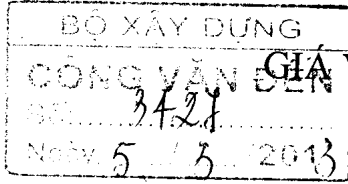 BỘ XÂY DỰNG
CÔNG VĂN ĐẾN GIÁ
Số 3427
Ngày 5 / 3 / 2013